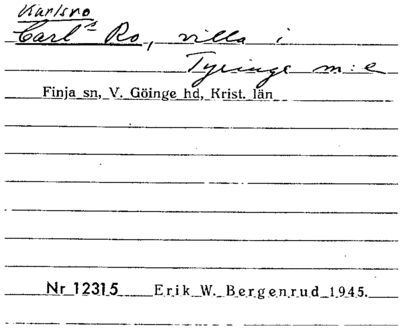 Karlsro
Carl's Ro, villa i
Tyringe m:e
Finja sn, V. Göinge hd, Krist. län
Nr 12315 Erik W. Bergenrud 1945.